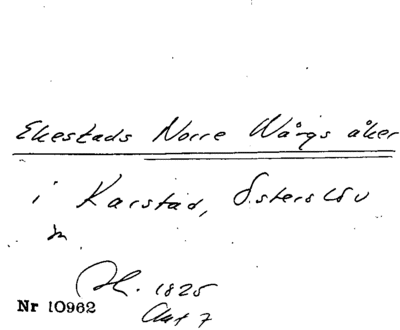 Ekestads Norre Wångs åker
i Karstad, Österslöv
sn
H. 1825
Nr 10962
Akt 7